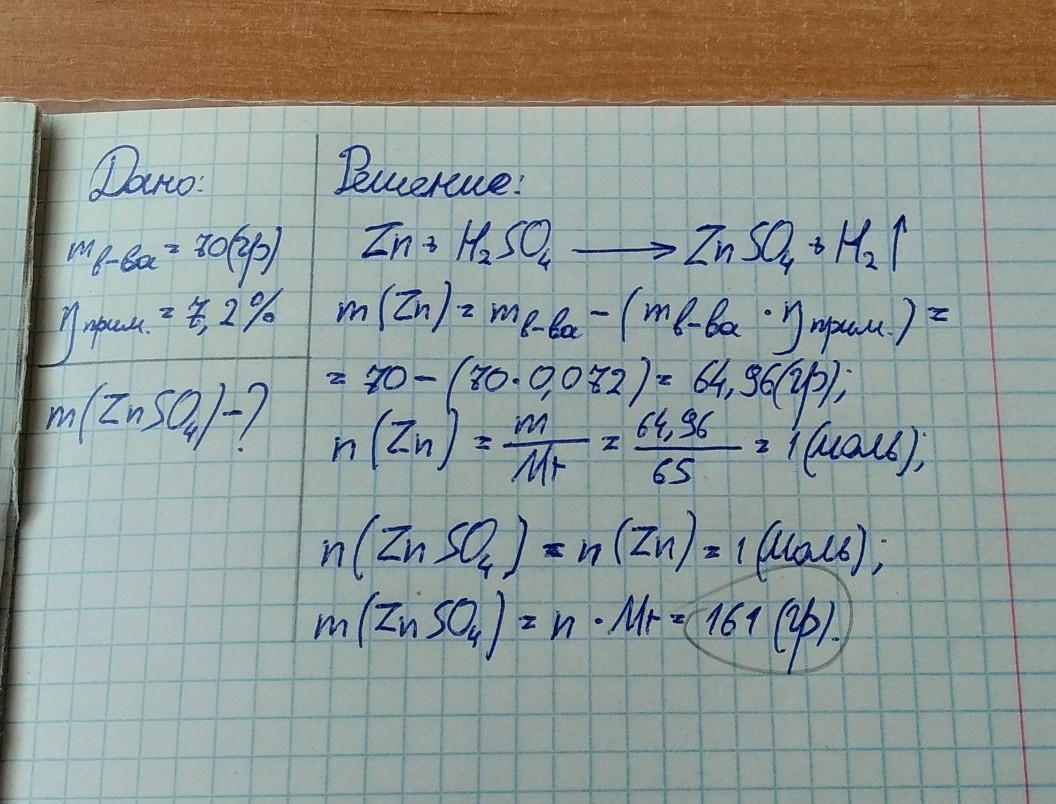 Дано:
m в-ва = 70(гр)
η прим. = 7,2%
m(ZnSO₄)-?
Решение:
Zn + H₂SO₄ ⟶ ZnSO₄ + H₂↑
m(Zn) = m в-ва - (m в-ва · η прим.) =
= 70 - (70·0,072) = 64,96(гр);
n(Zn) = m/Mr = 64,96/65 = 1(моль);
n(ZnSO₄) = n(Zn) = 1(моль);
m(ZnSO₄) = n · Mr = 161(гр).